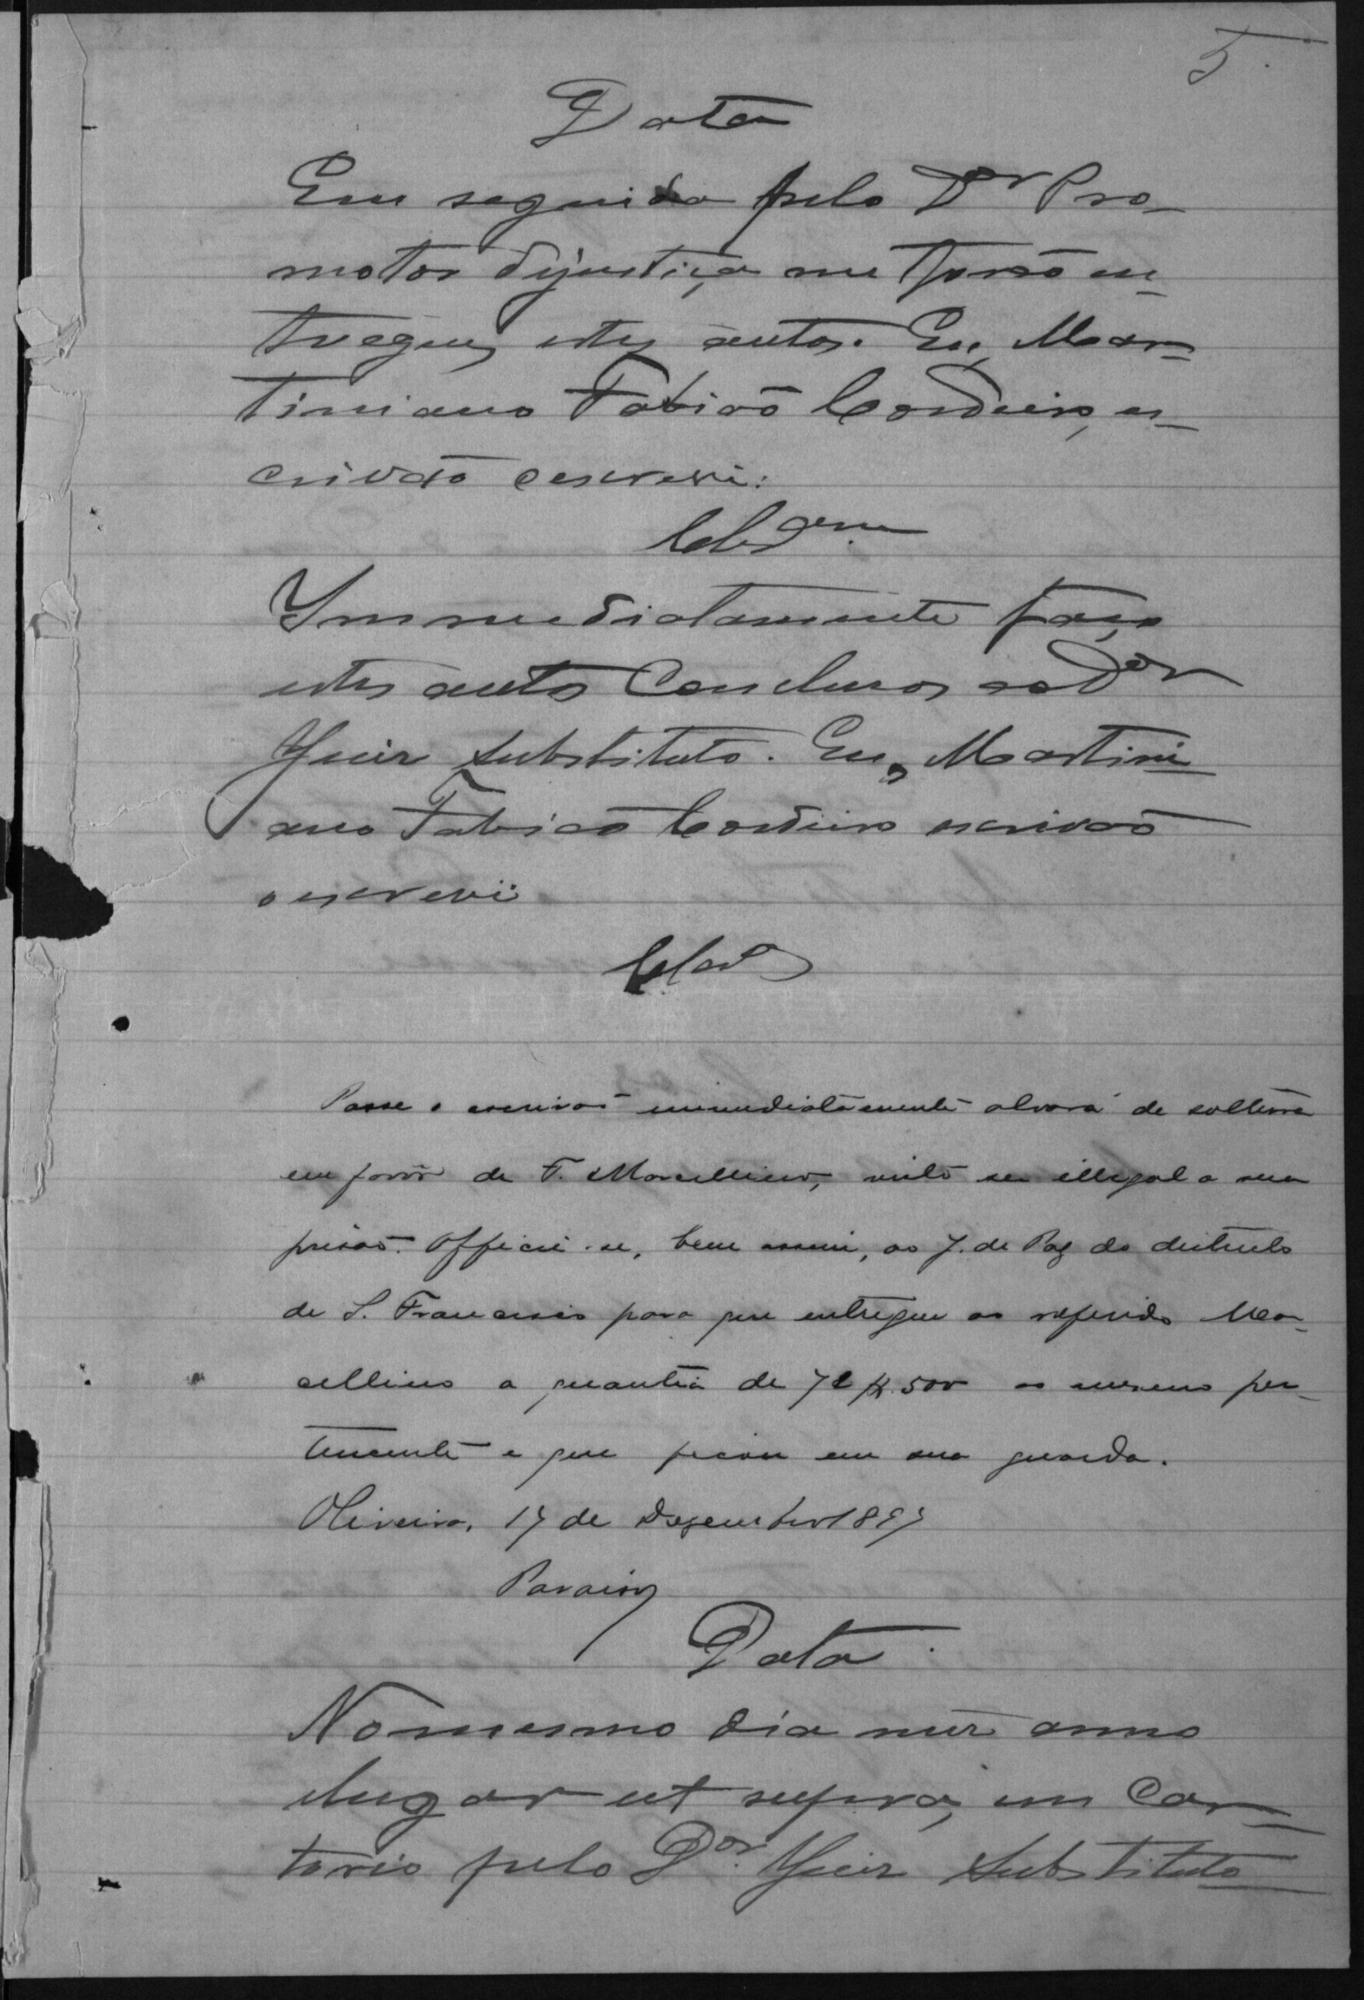 5.
Data
Em seguida pelo Dor Pro-
motor dijustiça me forão en-
tregues estes autos. Eu, Mar-
tiniano Fabião Cordeiro, es-
crivão oescrevi.
Immediatamente faço
estes autos Conclusos ao Dor
Juiz Substituto. Eu, Martini
ano Fabião Cordeiro escrivão
o escrevi
Clos
Passe o escrivão immediatamente alvará de soltura
em favor de F. Marcellino, visto ser illegal a sua
prisão. Officie-se, bem assim, ao J. de Paz do districto
de S. Francisco para que entregue ao referido Mar-
cellino a quantia de 72$500 ao mesmo per-
tencente e que ficou em sua guarda.
Oliveira, 17 de Dezembro 1897
Data
Nomesmo dia mez anno
elugar ut supra, em Car-
torio pelo Dor Juiz Substituto